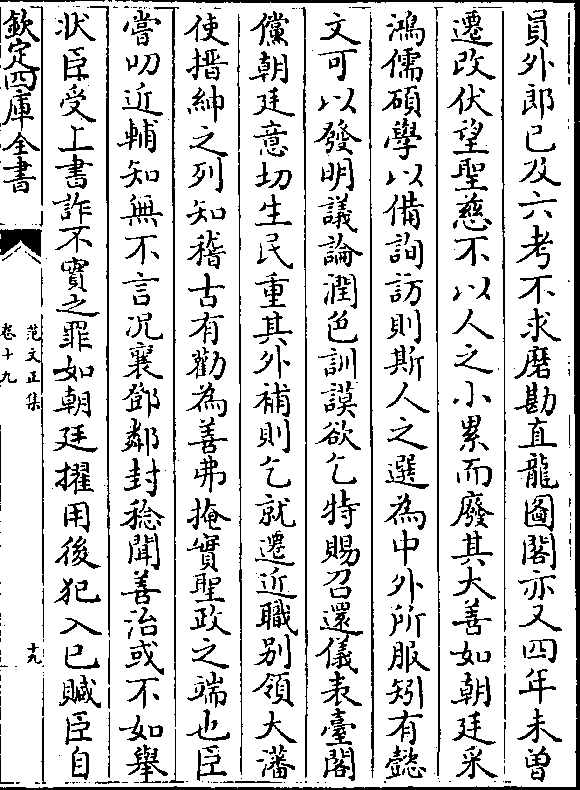 員外郎已及六考不求磨勘直龍圖閣亦又四年未曾
遷改伏望聖慈不以人之小累而廢其大善如朝廷采
鴻儒碩學以備詢訪則斯人之選為中外所服矧有懿
文可以發明議論潤色訓謨欲乞特賜召還儀表臺閣
儻朝廷意切生民重其外補則乞就遷近職別領大藩
使搢紳之列知稽古有勸為善弗掩實聖政之端也臣
嘗叨近輔知無不言况襄鄧鄰封稔聞善治或不如舉
狀臣受上書詐不實之罪如朝廷擢用後犯入已贓臣自
欽定四庫全書
范文正集
卷十九
十九